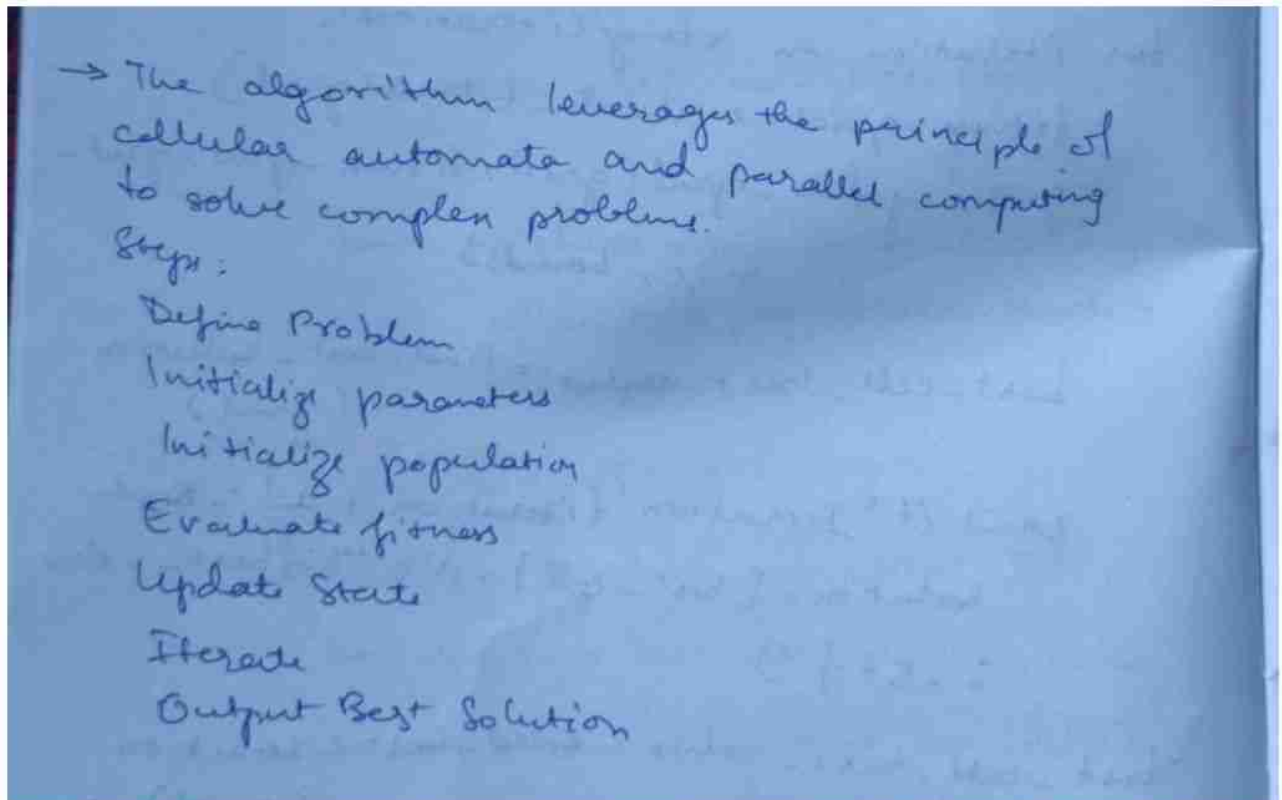 → The algorithm leverages the principle of
cellular automata and parallel computing
to solve complex problems.
Steps:
Define Problem
Initialize parameters
Initialize population
Evaluate fitness
Update State
Iterate
Output Best Solution